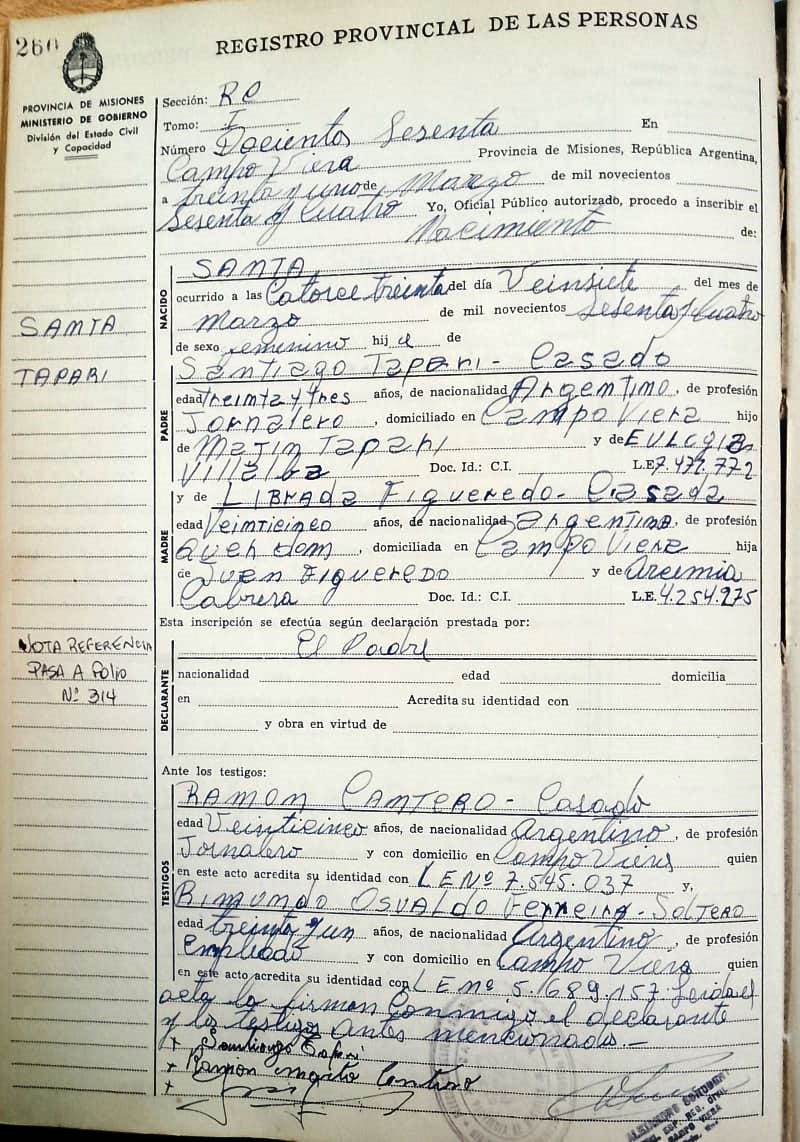 260
REGISTRO PROVINCIAL DE LAS PERSONAS
PROVINCIA DE MISIONES
MINISTERIO DE GOBIERNO
División del Estado Civil
y Capacidad
Sección: RC
Tomo: I
Número Docientos Sesenta En
Campo Viera Provincia de Misiones, República Argentina,
a treinta y uno de Marzo de mil novecientos
Sesenta y Cuatro Yo, Oficial Público autorizado, procedo a inscribir el
Nacimiento de:
NACIDO
SANTA
ocurrido a las Catorce treinta del día Veinsiete del mes de
Marzo de mil novecientos Sesenta y Cuatro
de sexo femenino hij a de
SANTA
TAPARI
PADRE
Santiago Tapari - Casado
edad treinta y tres años, de nacionalidad Argentino, de profesión
Jornalero, domiciliado en Campo Viera hijo
de Martin Tapari y de Eulogia
Villalba Doc. Id.: C.I. L.E. 7.471.772
MADRE
y de Librada Figueredo - Casada
edad Veinticinco años, de nacionalidad Argentina, de profesión
Queh dom, domiciliada en Campo Viera hija
de Juan Figueredo y de Arcemia
Cabrera Doc. Id.: C.I. L.E. 4.254.975
Esta inscripción se efectúa según declaración prestada por:
NOTA REFERENCIA
PASA A FOLIO
Nº 314
DECLARANTE
El Padre
nacionalidad edad domicilia
en Acredita su identidad con
y obra en virtud de
Ante los testigos:
TESTIGOS
RAMON CANTERO - Casado
edad Veinticinco años, de nacionalidad Argentino, de profesión
Jornalero y con domicilio en Campo Viera quien
en este acto acredita su identidad con LE Nº 7.545.037 y,
RIMUNDO OSVALDO Ferreira - SOLTERO
edad treinta y un años, de nacionalidad Argentino, de profesión
Empleado y con domicilio en Campo Viera quien
en este acto acredita su identidad con LE Nº 5.689.157. Leida el
acta la firman Conmigo el declarante
y los testigos antes mencionados.-
+ Santiago Tapari
+ Ramon Cantero
+